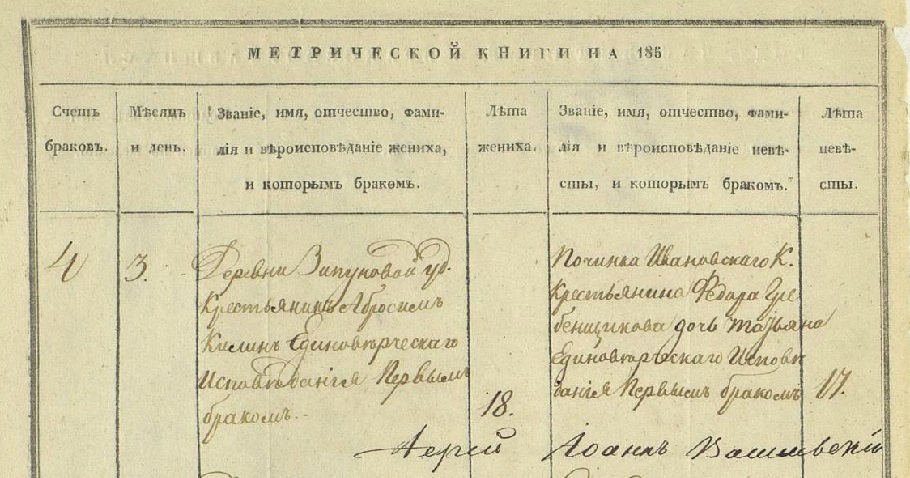 МЕТРИЧЕСКОЙ КНИГИ НА 185
Счетъ
браковъ.
Мѣсяцъ
и день.
Званіе, имя, отчество, фами-
лія и вѣроисповѣданіе жениха,
и которымъ бракомъ.
Лѣта
жениха.
Званіе, имя, отчество, фами-
лія и вѣроисповѣданіе невѣ-
сты, и которымъ бракомъ.
Лѣта
невѣ-
сты.
4
3.
Деревни Зипуновой уд.
Крестьянинъ Абросимъ
Килинъ Единовѣрческаго
Исповѣданія Первымъ
бракомъ.
18.
Починка Ивановскаго К.
Крестьянина Федора Гре
бенщикова дочь Татьяна
Единовѣрческаго Исповѣ
данія Первымъ бракомъ
17.
Іерей Іоаннъ